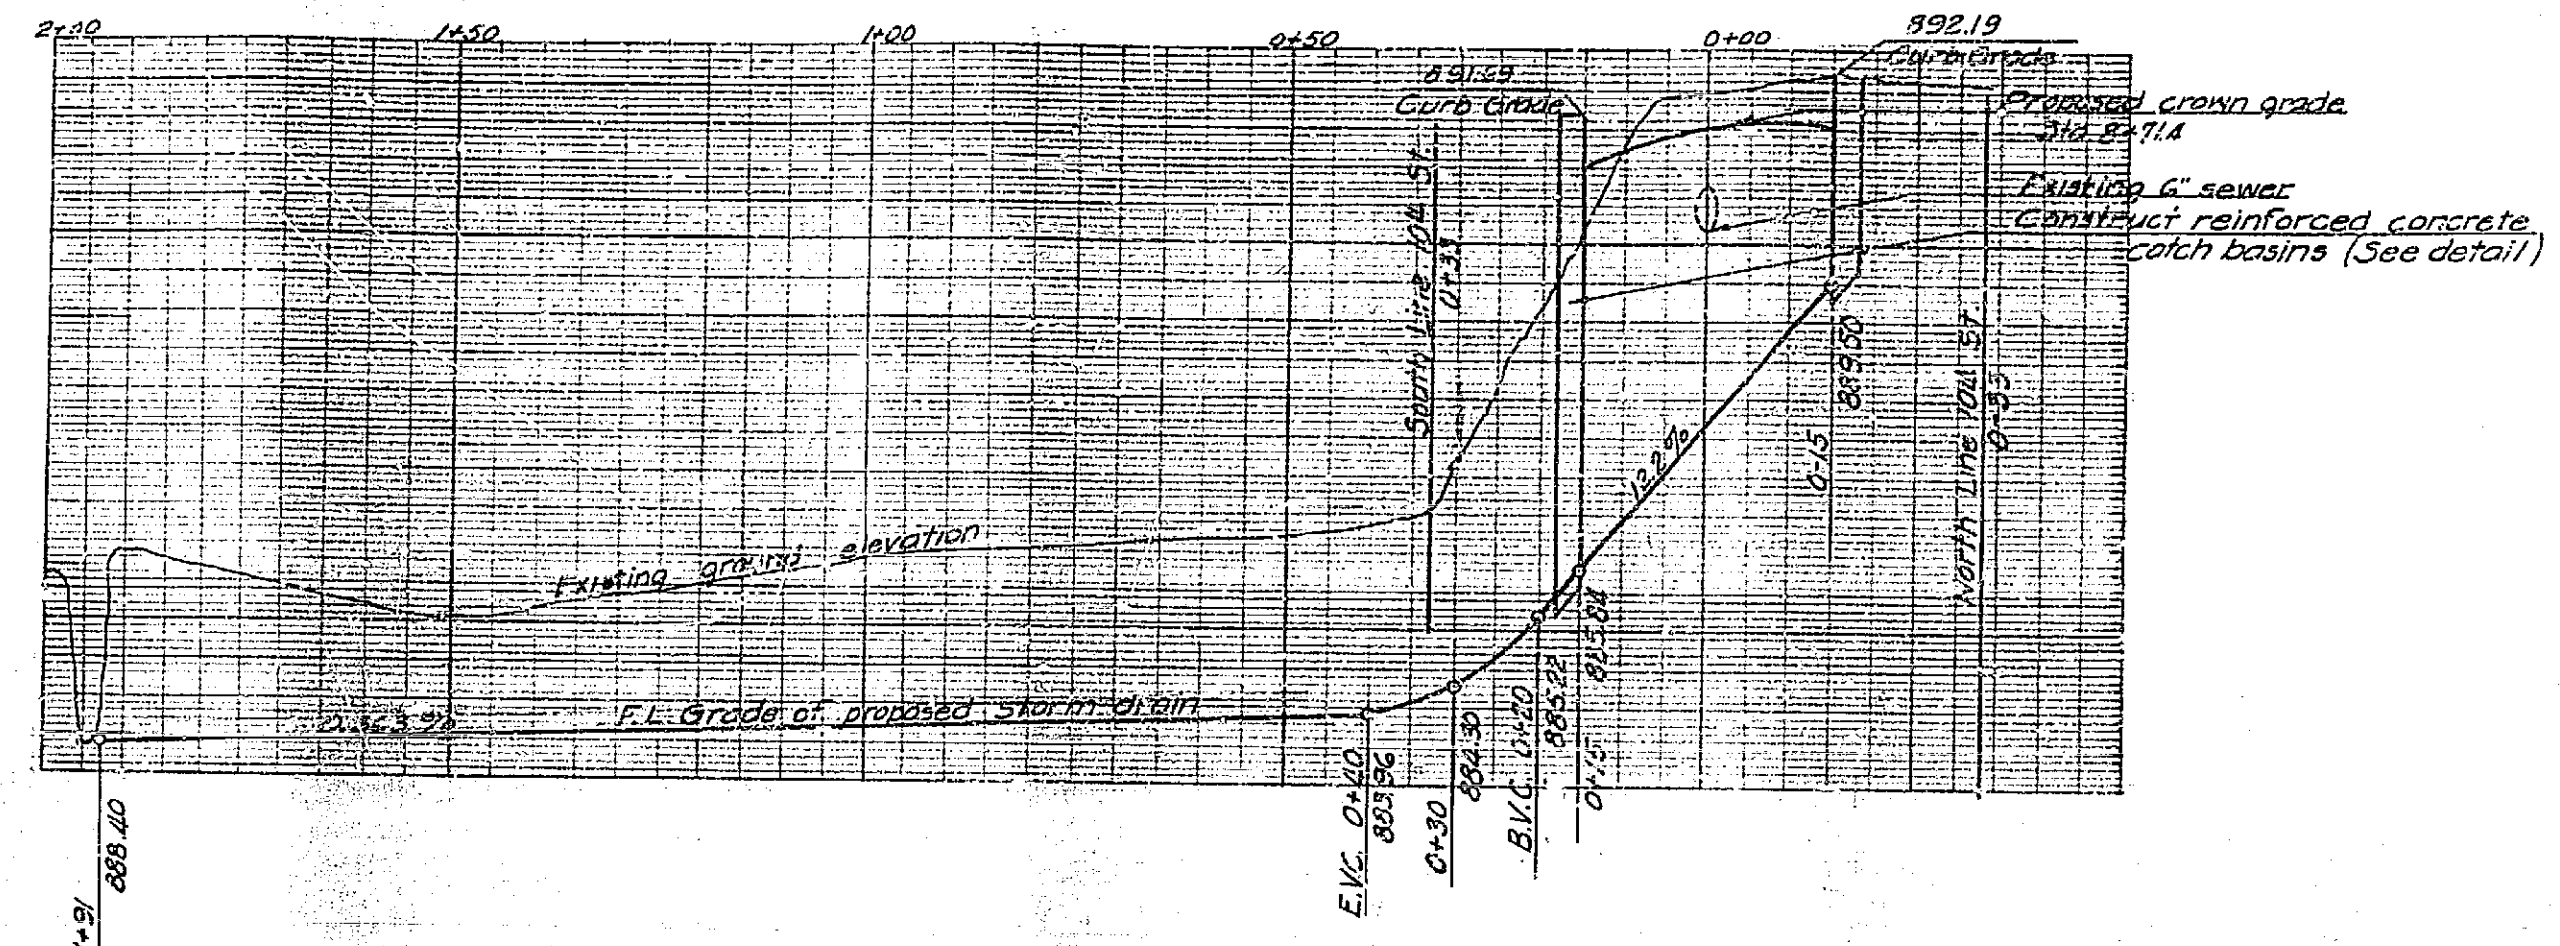 1+50
1+00
0+50
0+00
892.19
Curb Grade
Curb Grade
Proposed crown grade
Existing 6" sewer
Construct reinforced concrete
catch basins (See detail)
South Line 104 St.
North Line 104 St.
0-15
889.50
12.2%
Existing ground elevation
F.L. Grade of proposed Storm drain
888.40
E.V.C. 0+40
0+30
884.30
B.V.C. 0+20
885.22
0+15
885.84